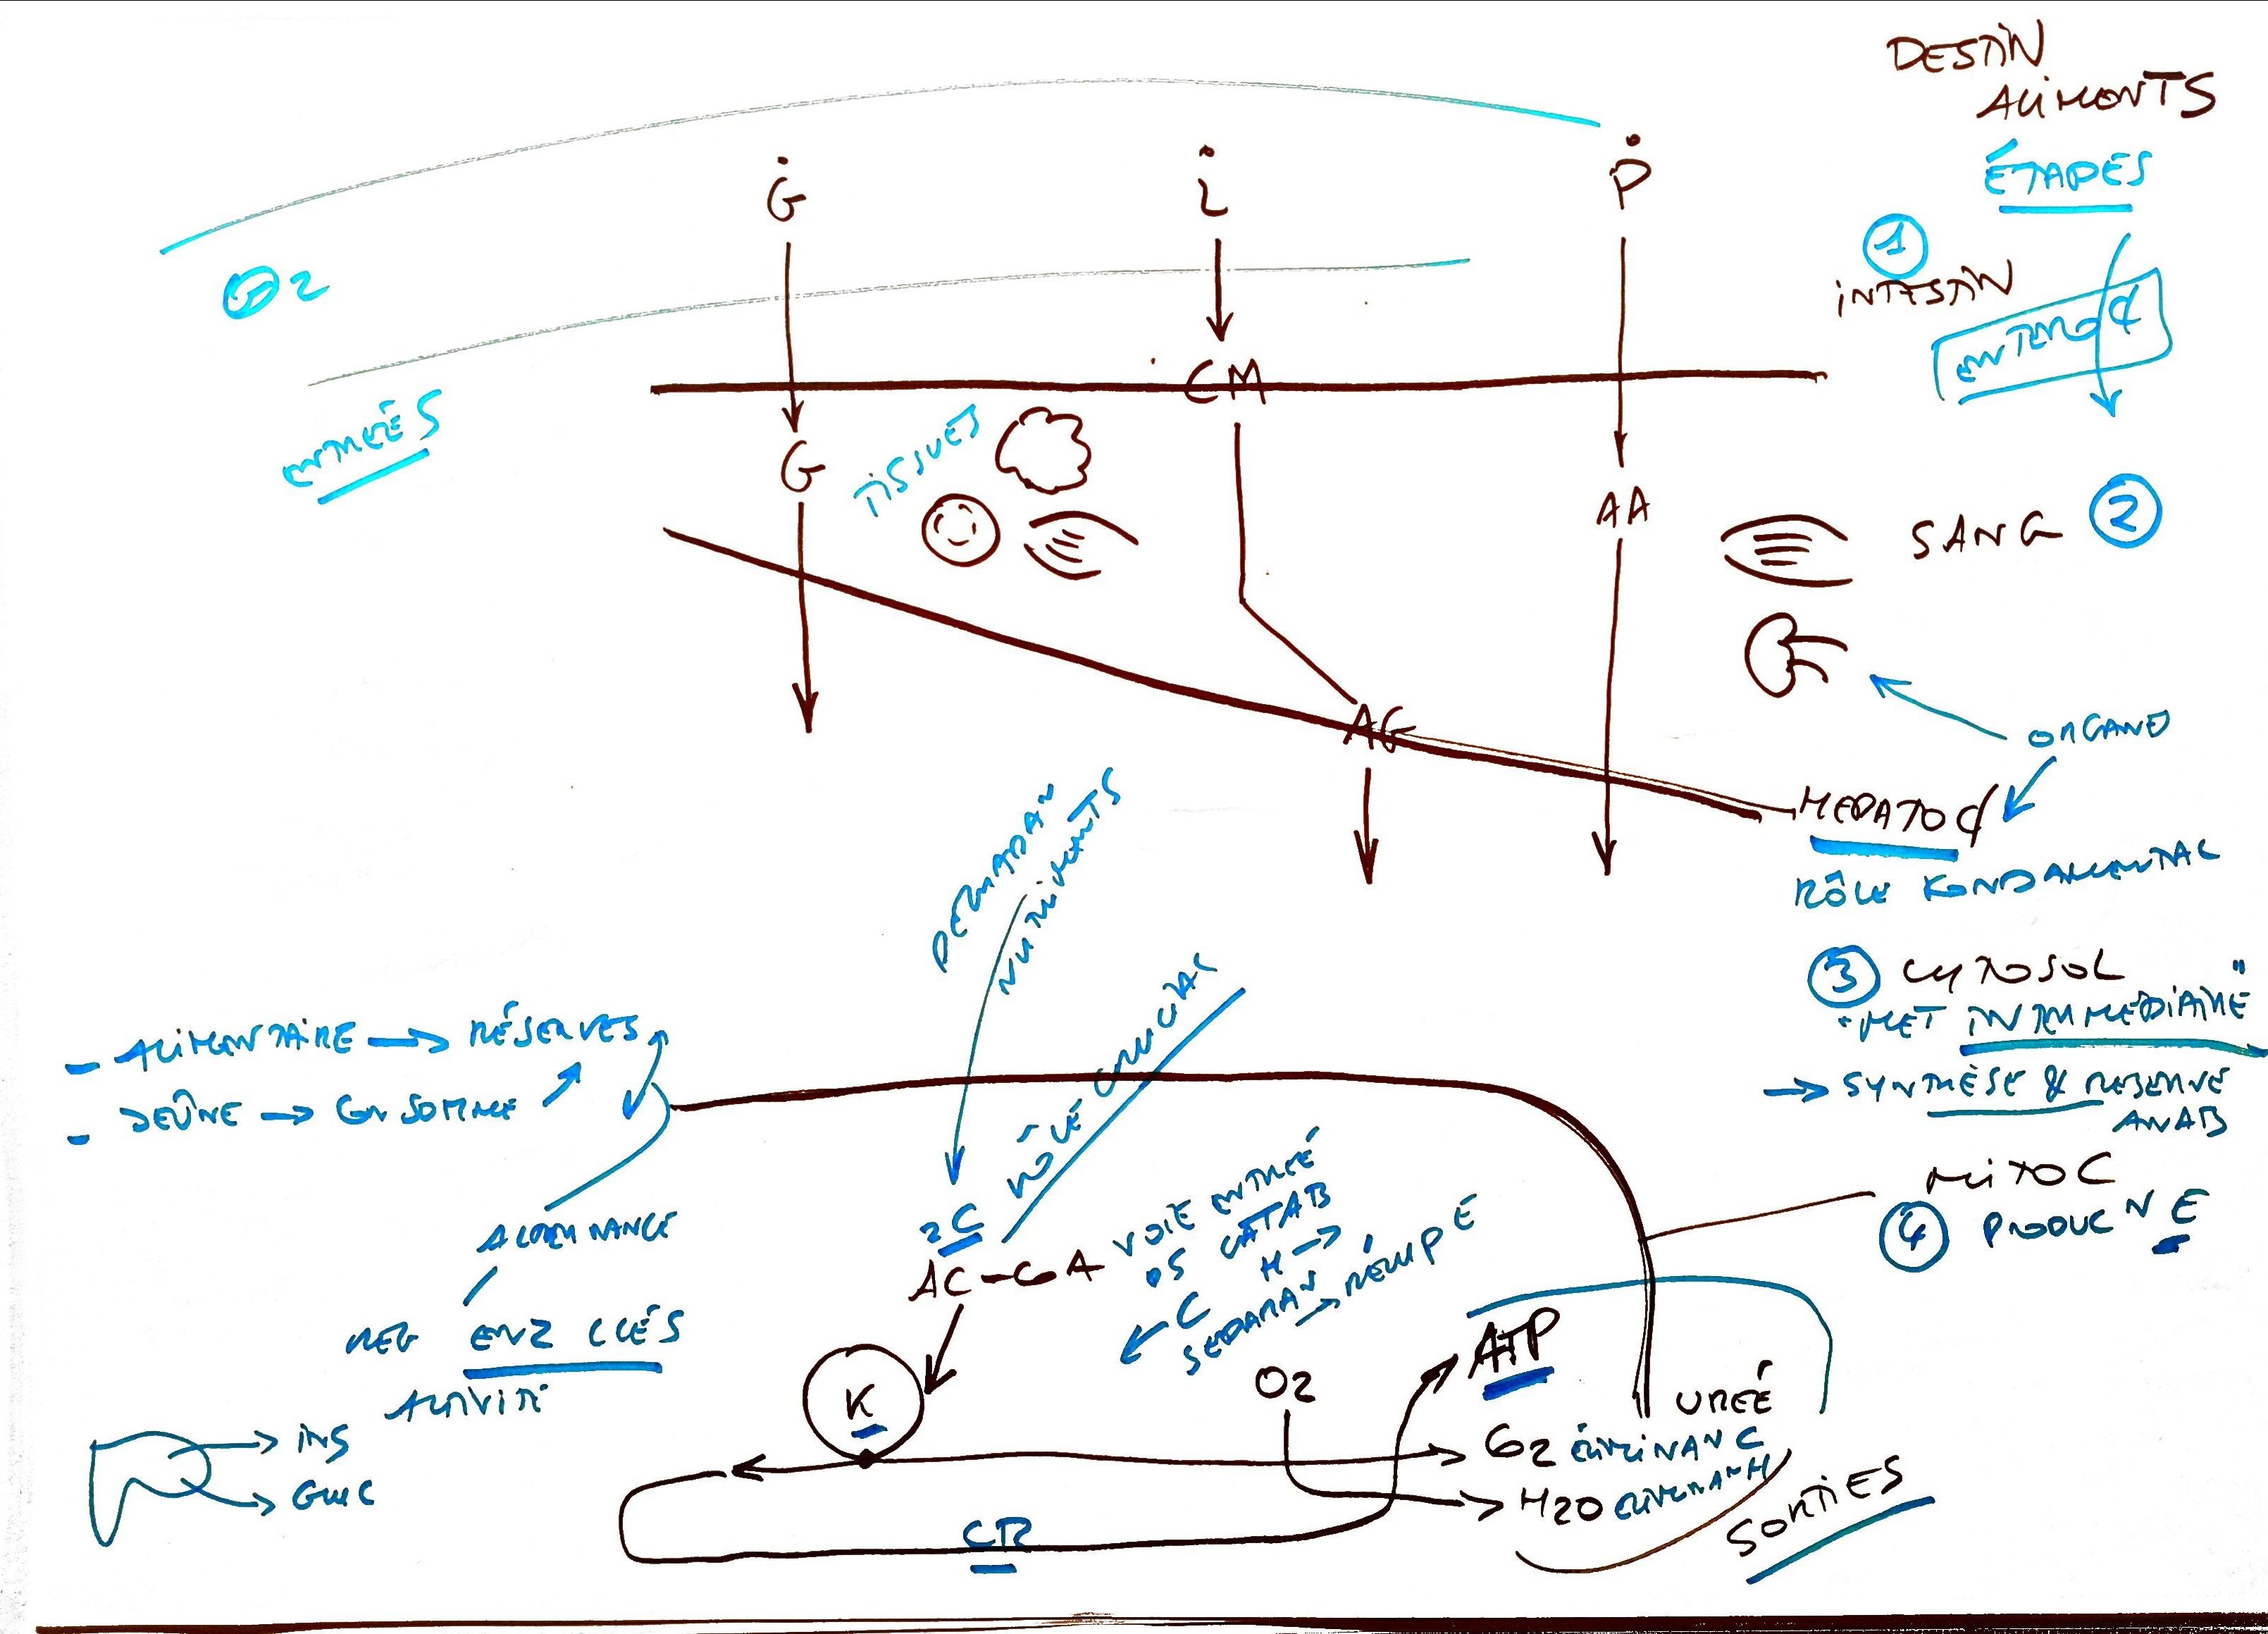 DESTIN
ALIMENTS
ÉTAPES
G
L
P
1
INTESTIN
ENTEROC
O2
ENTRÉES
CM
TISSUES
G
AA
SANG 2
AG
ORGANE
HEPATOC
RÔLE FONDAMENTAL
NUTRIMENTS
3 CYTOSOL
"MET INTERMEDIAIRE"
→ SYNTHÈSE & RESERVE
ANAB
- ALIMENTAIRE → RÉSERVES
- JEÛNE → CONSOMME
RÔLE CRUCIAL
MITOC
4 PRODUC N E
ALTERNANCE
2C
AC-COA
VOIE ENTRÉE
DS CATAB
H →
C
SEPARAN
→ RÉCUP E
REG ENZ CLÉS
ACTIVITÉ
INS
GLUC
K
O2
ATP
URÉE
CO2 ÉLIMINAN C
H2O ELIMINAN H
SORTIES
CR